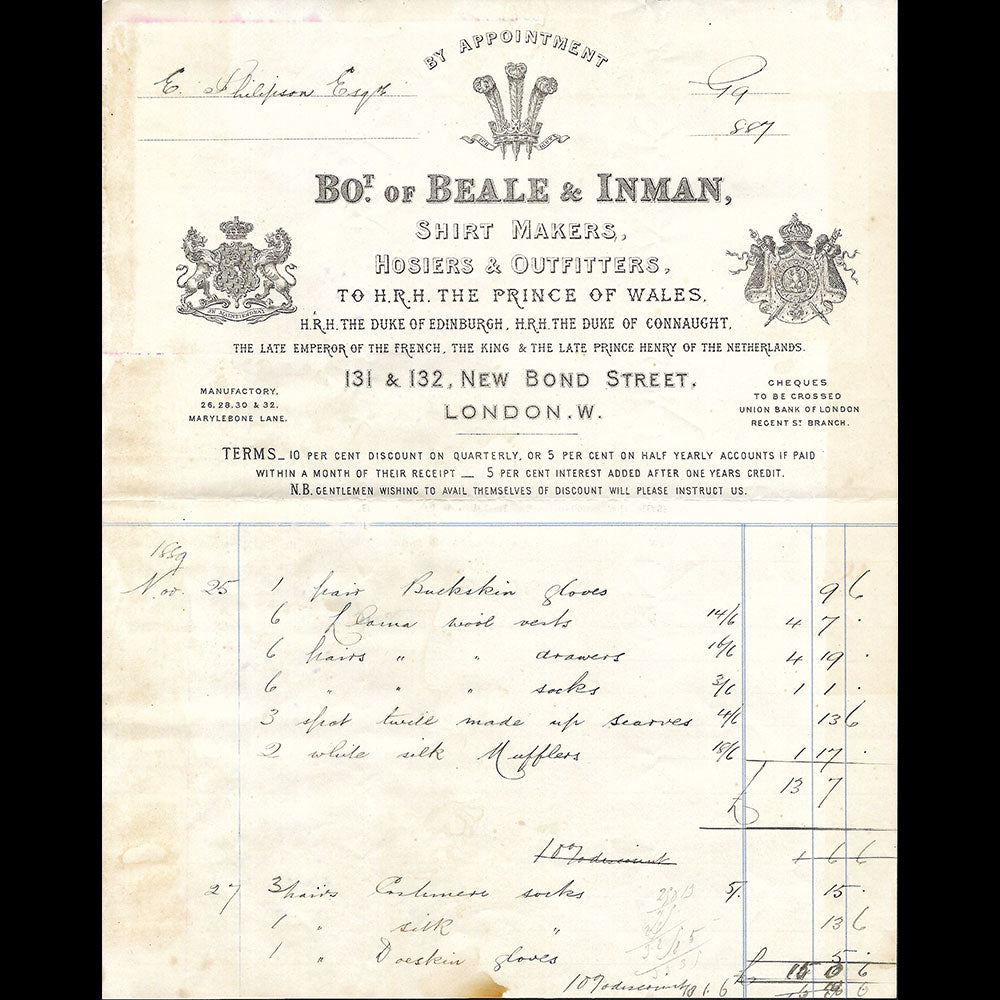 BY APPOINTMENT
E. Philipson Esqre
G9
887
BOT. OF BEALE & INMAN,
SHIRT MAKERS,
HOSIERS & OUTFITTERS,
TO H.R.H. THE PRINCE OF WALES,
H.R.H. THE DUKE OF EDINBURGH, H.R.H. THE DUKE OF CONNAUGHT,
THE LATE EMPEROR OF THE FRENCH, THE KING & THE LATE PRINCE HENRY OF THE NETHERLANDS.
JE MAINTIENDRAI
131 & 132, NEW BOND STREET,
LONDON. W.
MANUFACTORY,
26, 28, 30 & 32,
MARYLEBONE LANE.
CHEQUES
TO BE CROSSED
UNION BANK OF LONDON
REGENT ST. BRANCH.
TERMS_ 10 PER CENT DISCOUNT ON QUARTERLY, OR 5 PER CENT ON HALF YEARLY ACCOUNTS IF PAID
WITHIN A MONTH OF THEIR RECEIPT _ 5 PER CENT INTEREST ADDED AFTER ONE YEARS CREDIT.
N.B. GENTLEMEN WISHING TO AVAIL THEMSELVES OF DISCOUNT WILL PLEASE INSTRUCT US.
1889
Nov. 25 1 pair Buckskin gloves 9 6
6 Llama wool vests 14/6 4 7 .
6 pairs " " drawers 16/6 4 19 .
6 " " " socks 3/6 1 1 .
3 spot twill made up scarves 4/6 13 6
2 white silk Mufflers 18/6 1 17 .
£ 13 7
10% discount 1 6 6
27 3 pairs Cashmere socks 5/. 15 .
1 " silk " 13 6
1 " Doeskin gloves 5 .
£ 15 6
10% discount